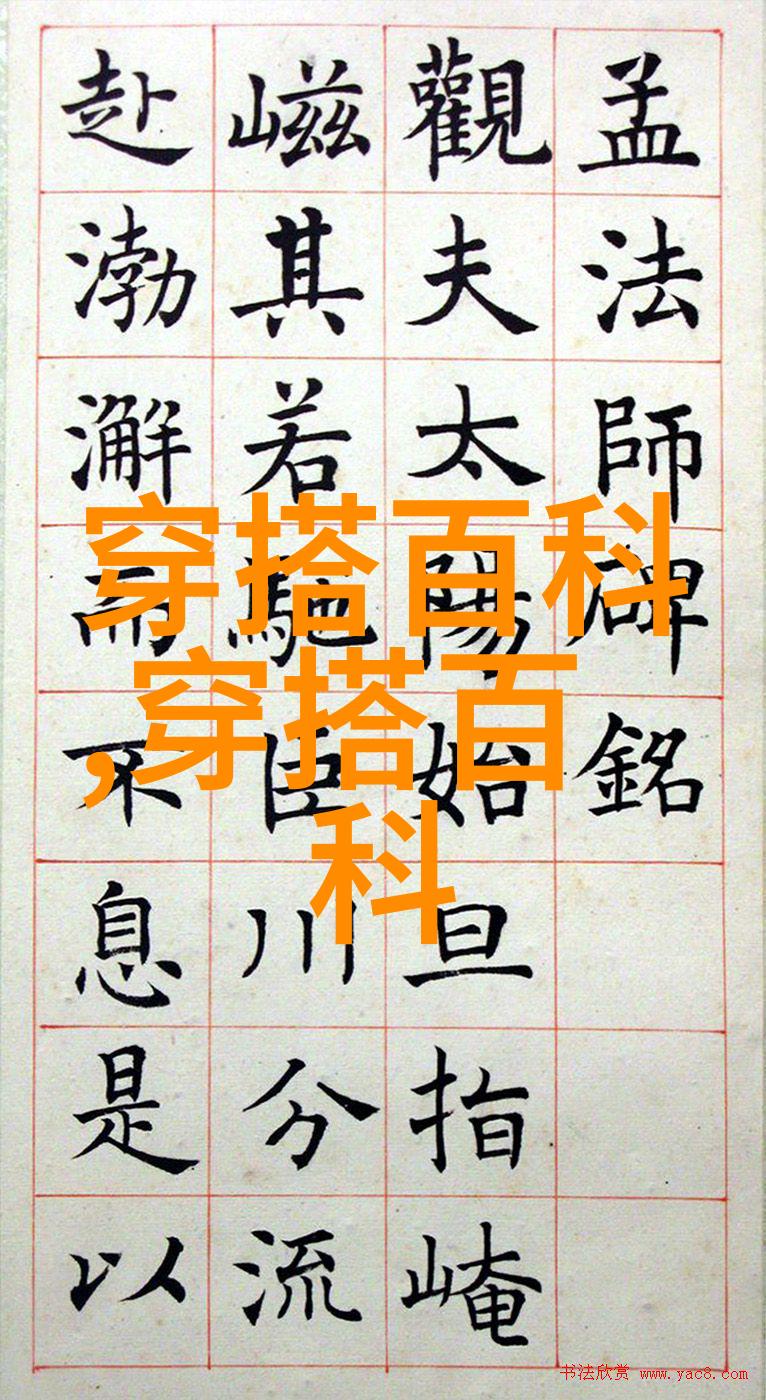 孟法師碑銘
觀夫太陽始旦指崦
嵫其若馳臣川分流
赴渤澥而不息是以
穿搭百科
,穿搭百
科
书法欣赏 www.yac8.com